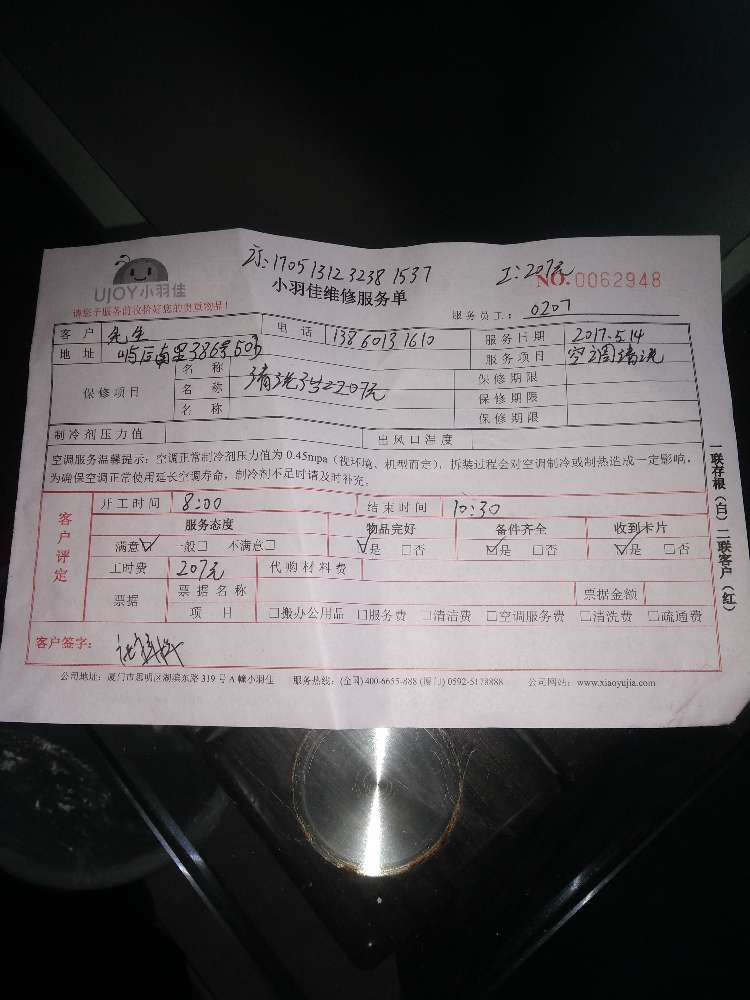 订:1705 1312 3238 1537
工:207元
UJOY小羽佳
小羽佳维修服务单
NO.0062948
请您于服务前收拾好您的贵重物品!
服务员工: 0207
客户 先生 电话 13860131610 服务日期 2017.5.14
地址 南里386号503 服务项目 空调清洗
保修项目 名称 保修期限
名称 清洗 207元 保修期限
名称 保修期限
制冷剂压力值 出风口温度
空调服务温馨提示:空调正常制冷剂压力值为 0.45mpa(视环境、机型而定),拆装过程会对空调制冷或制热造成一定影响,
为确保空调正常使用延长空调寿命,制冷剂不足时请及时补充。
客户评定
开工时间 8:00 结束时间 10:30
服务态度 物品完好 备件齐全 收到卡片
满意☑ 一般□ 不满意□ ☑是 □否 ☑是 □否 ☑是 □否
工时费 207元 代购材料费
票据 票据名称 票据金额
项目 □搬办公用品 □服务费 □清洁费 □空调服务费 □清洗费 □疏通费
客户签字:
一联存根(白)二联客户(红)
公司地址:厦门市思明区湖滨东路 319 号 A 幢小羽佳 服务热线:(全国) 400-6655-888 (厦门) 0592-5178888 公司网站:www.xiaoyujia.com